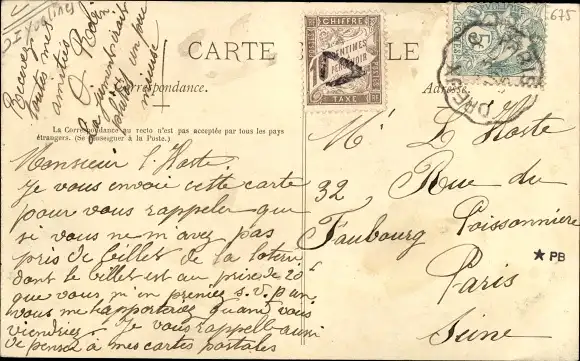 CARTE POSTALE
Correspondance.
Adresse
La Correspondance au recto n'est pas acceptée par tous les pays
étrangers. (Se renseigner à la Poste.)
CHIFFRE
CENTIMES
TAXE
T
5
675
Recevez
toute mes
amitiés
O Robin
un peu
mieuse
Monsieur l'Hoste
Je vous envoie cette carte
pour vous rappeler que
si vous ne m'avez pas
pris de billet de la loterie
dont le billet est au prise de 20f
que vous m'en preniez s.v.p un,
vous me l'apporterez quand vous
viendriez. Je vous rappelle aussi
de pensez à mes cartes postales
Mr L Hoste
32, Rue du
Faubourg Poissonniere
Paris
Seine
★ PB